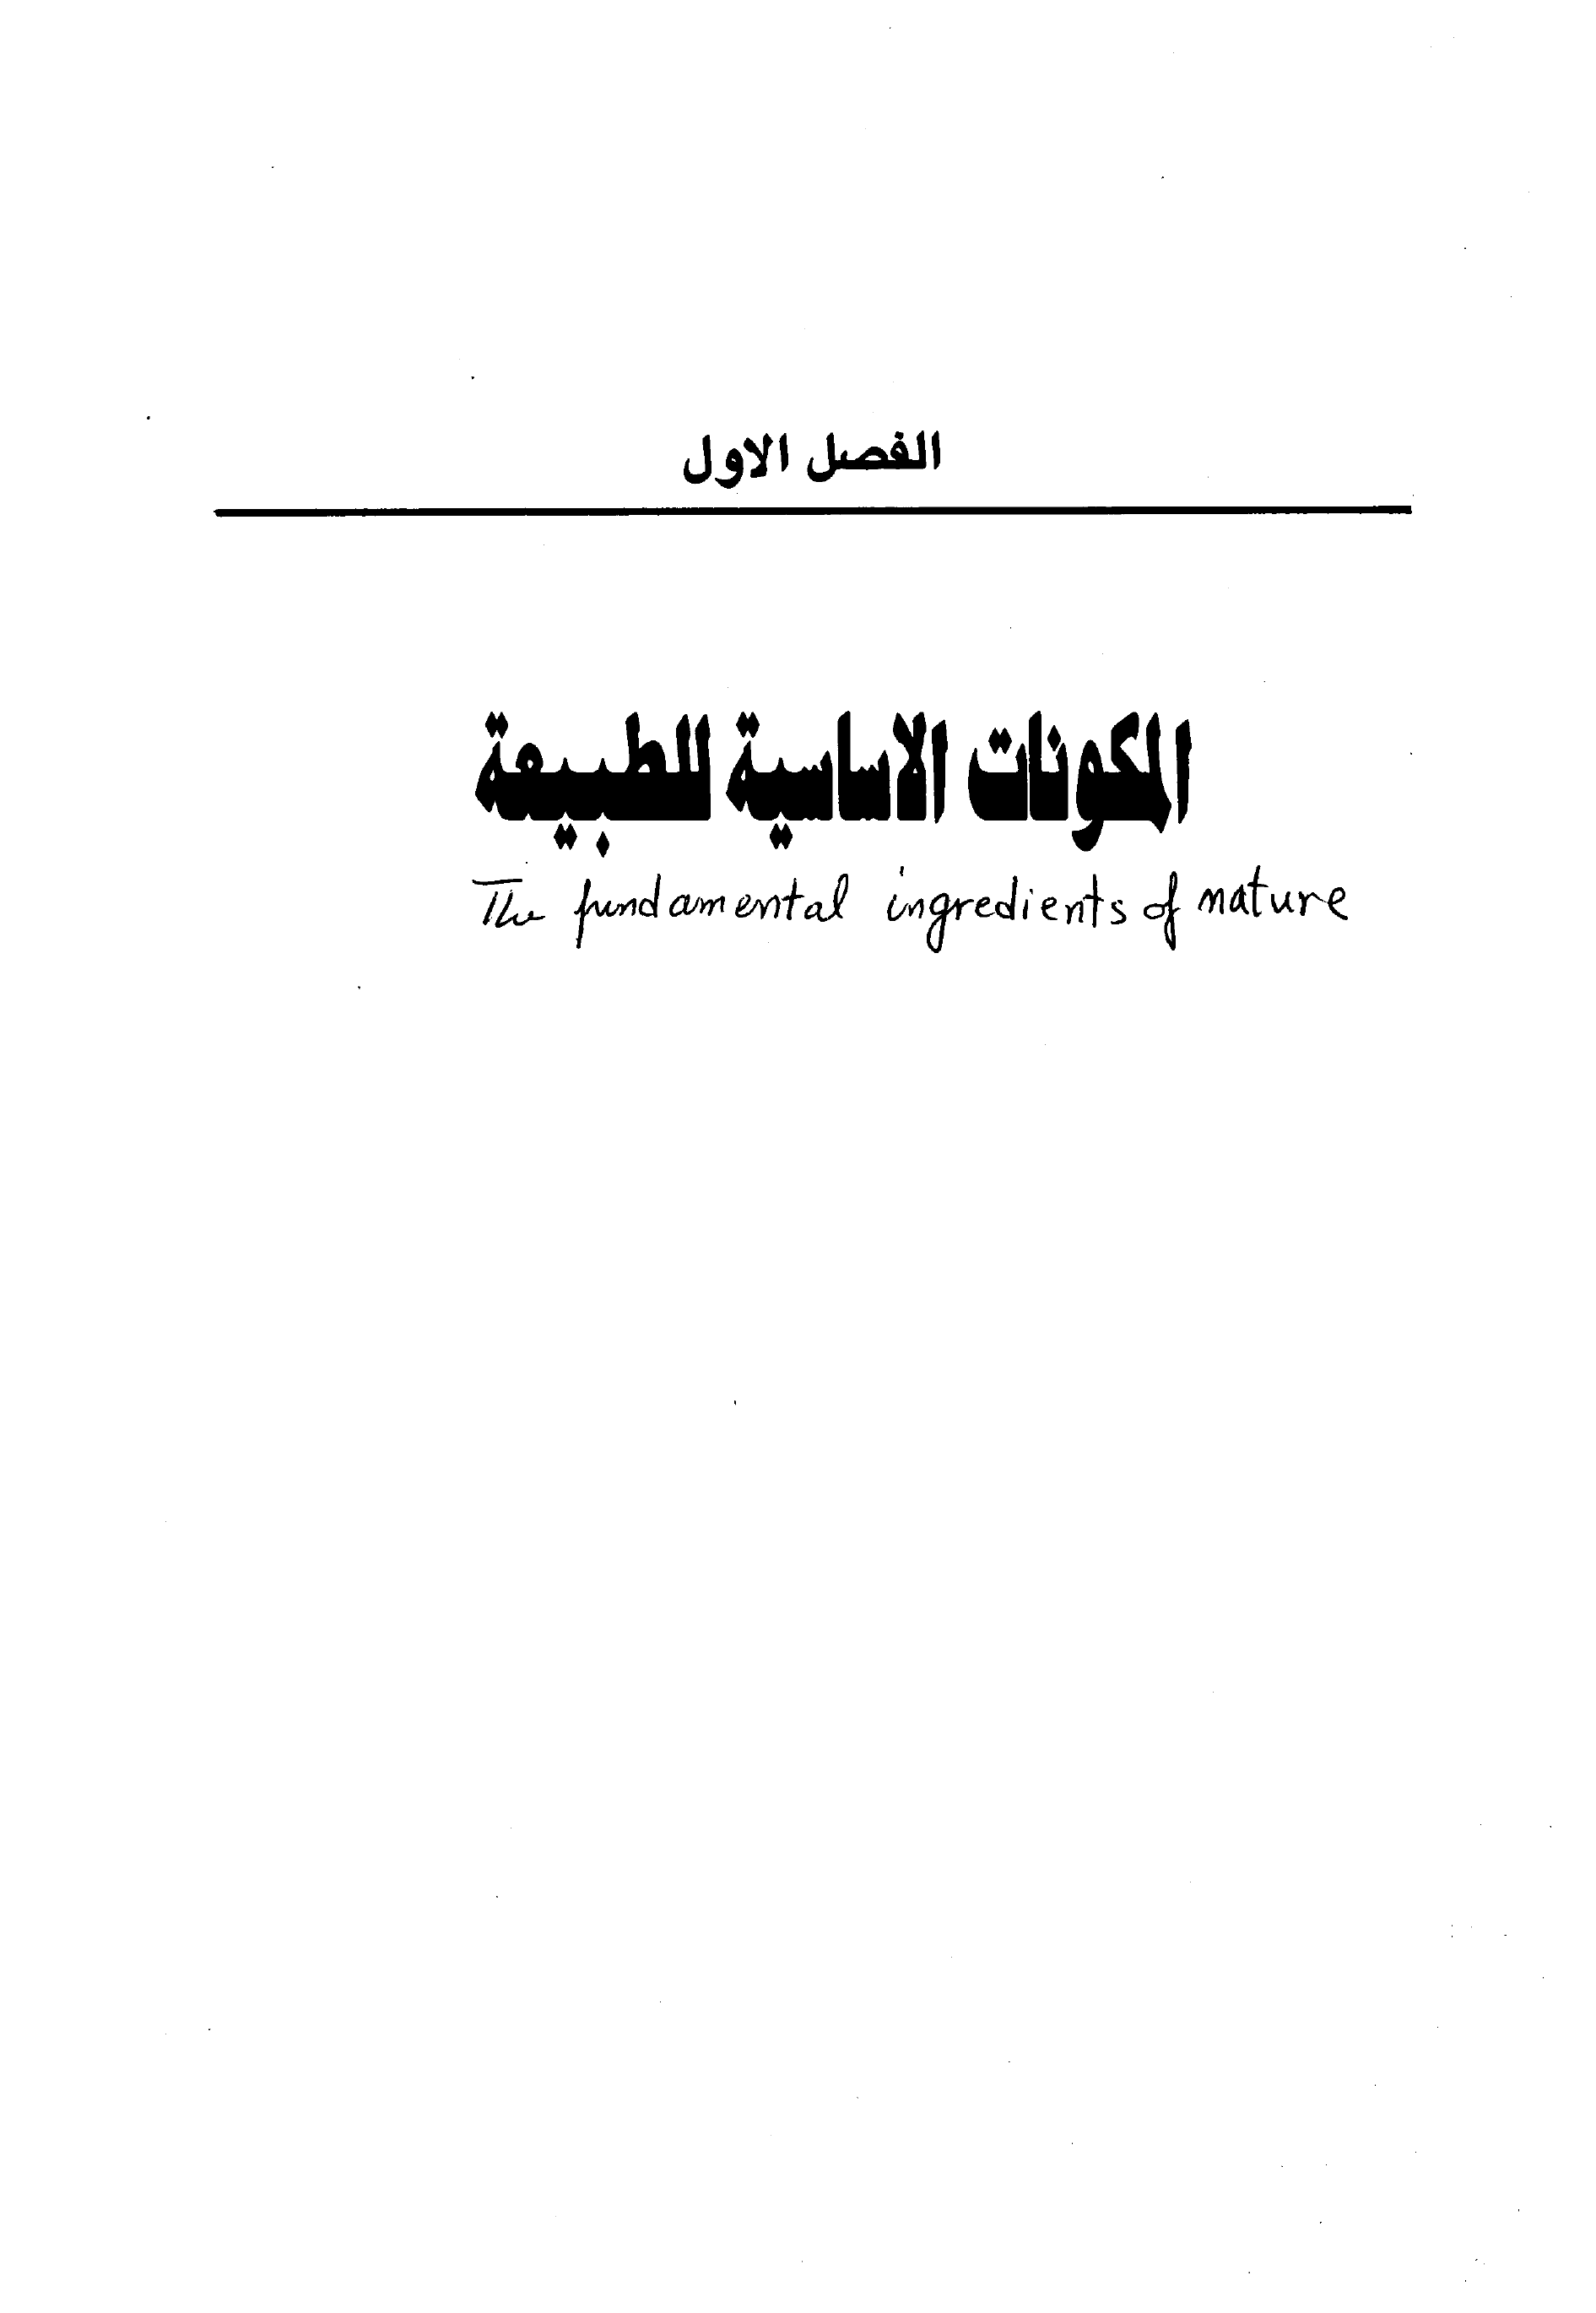 الفصل الاول
المكونات الاساسية للطبيعة
The fundamental ingredients of nature